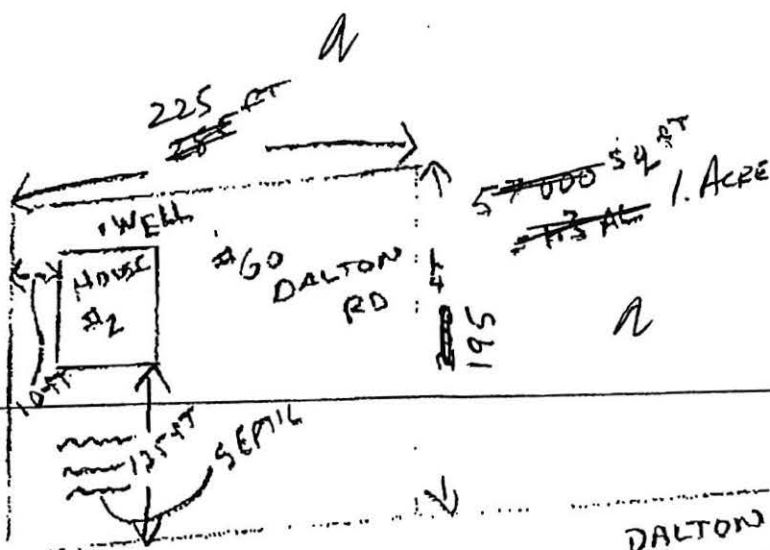 225
FT
57000 SQ FT
1. ACRE
WELL
HOUSE
#2
#60
DALTON
RD
195
10 FT
135 FT
SEPTIC
DALTON